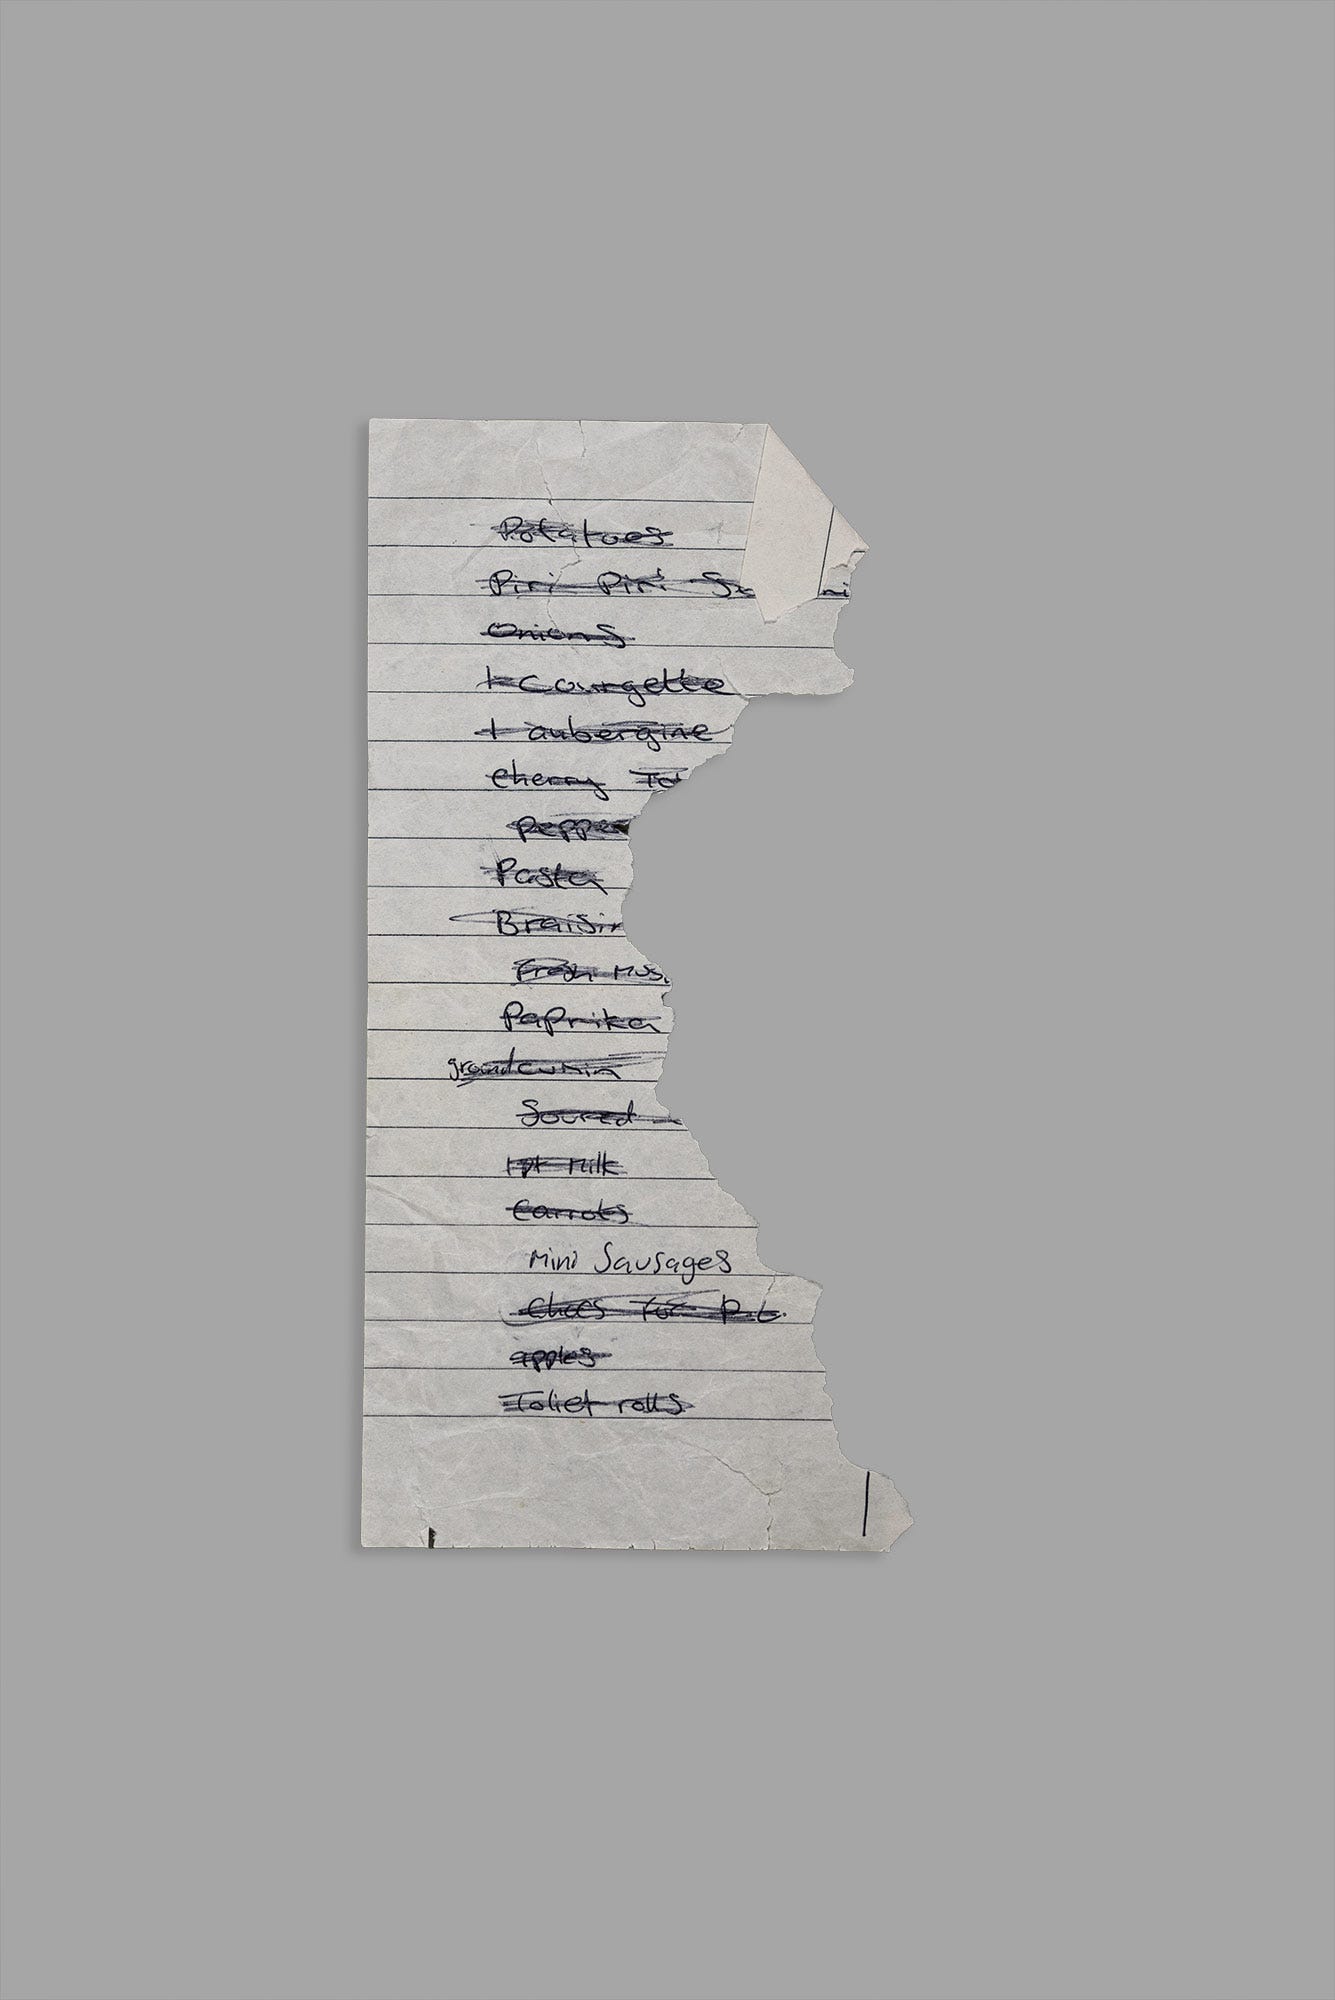 Potatoes
Piri Piri Sa ni
Onions
1 Courgette
1 aubergine
Cherry To
Peppe
Pasta
Braisin
Fresh Mus
Paprika
ground cumin
Soured
1 pt Milk
Carrots
Mini Sausages
for P.L.
apples
Toliet rolls